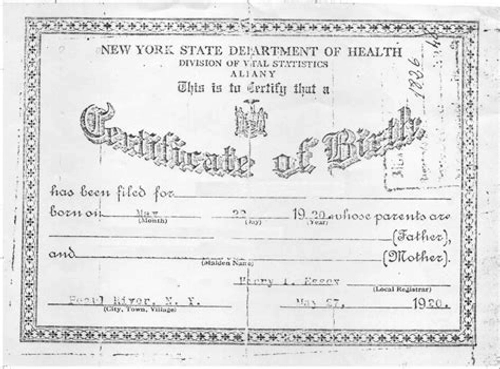 NEW YORK STATE DEPARTMENT OF HEALTH
DIVISION OF VITAL STATISTICS
ALBANY
This is to Certify that a
Certificate of Birth
has been filed for
born on May 22 1920 whose parents are
(Month) (Day) (Year)
(Father),
and (Mother).
(Maiden Name)
(Local Registrar)
Pearl River, N. Y. May 27, 1920.
(City, Town, Village)